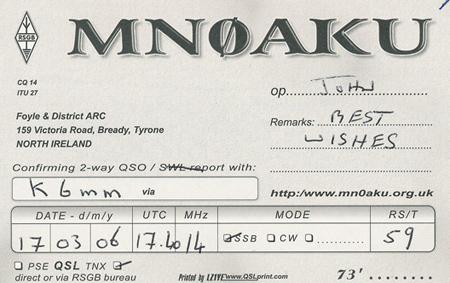 MNØAKU
RSGB
CQ 14
ITU 27
op JOHN
Foyle & District ARC
159 Victoria Road, Bready, Tyrone
NORTH IRELAND
Remarks: BEST
WISHES
Confirming 2-way QSO / SWL report with:
K6mm via
http:/www.mn0aku.org.uk
DATE - d/m/y UTC MHz MODE RS/T
17 03 06 17.40 14 SSB CW 59
PSE QSL TNX
direct or via RSGB bureau
Printed by LZ1YE www.QSLprint.com
73'